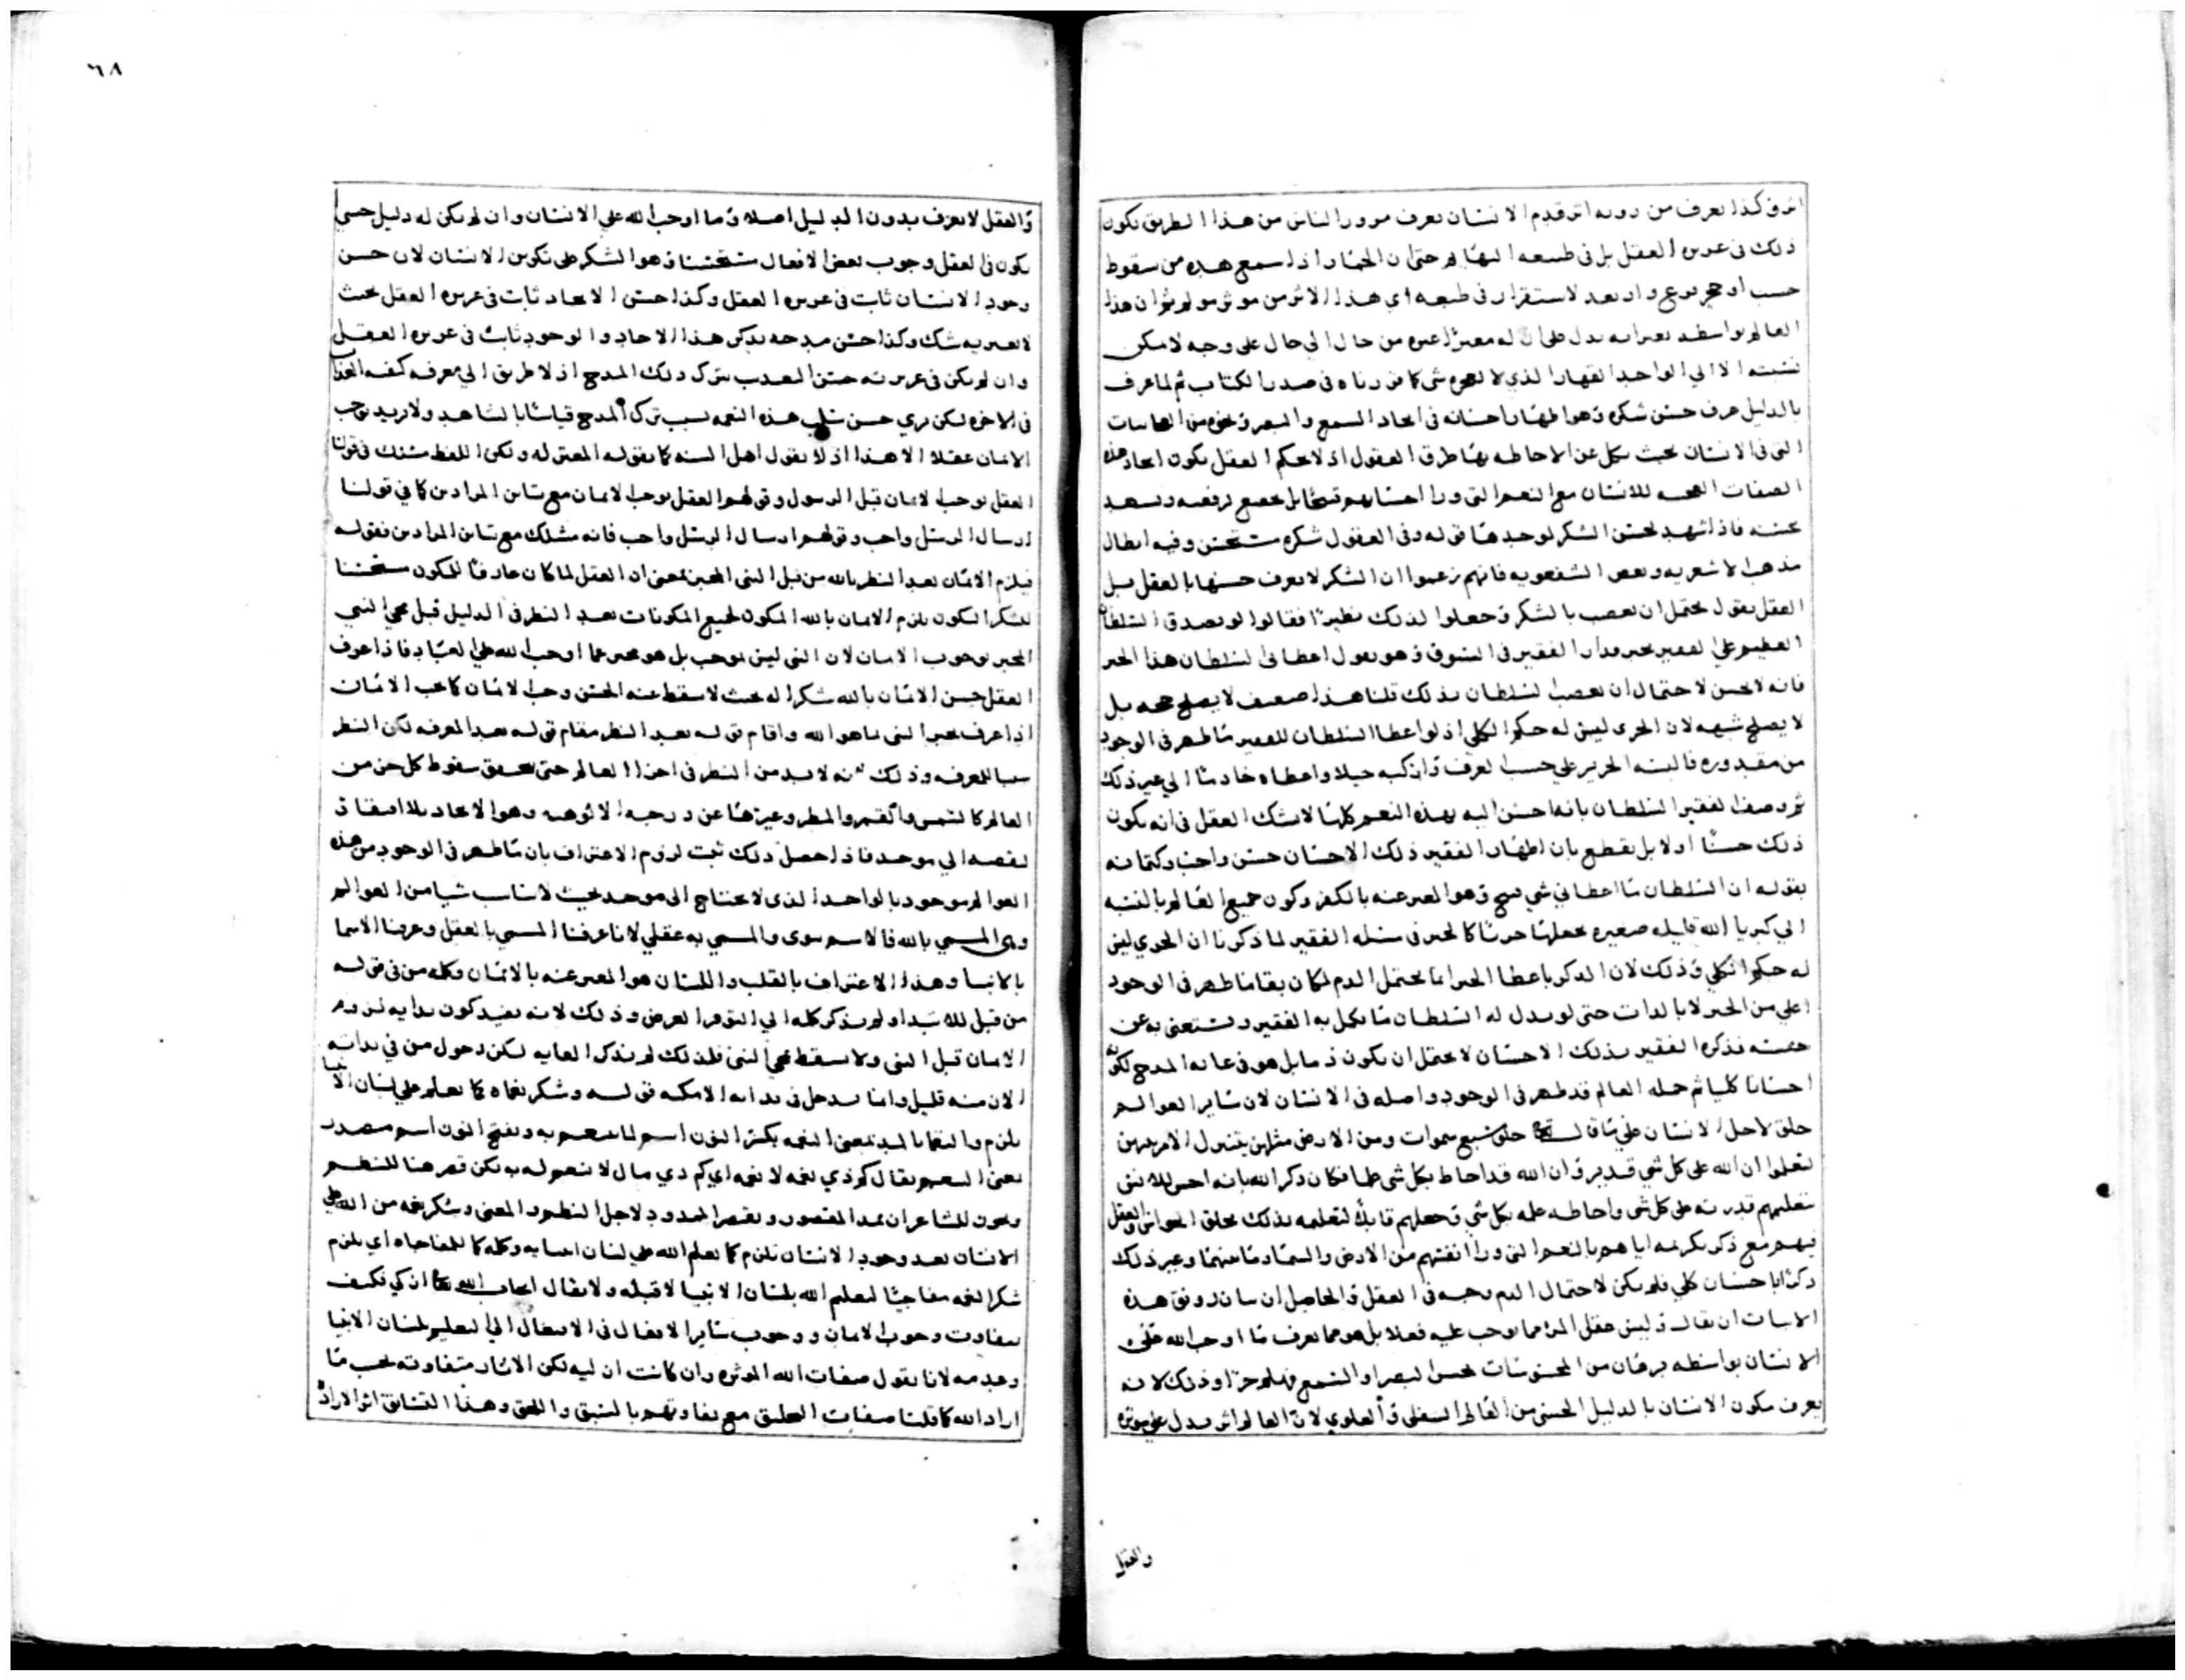 اثر وكذا يعرف من رويه اثر قدم الانسان يعرف مرور الناس من هذا الطريق يكون
ذلك فى غريزه العقل بل فى طبيعه البهايم حتى ان الحمار اذا سمع هده من سقوط
خشب او حجر يفزع واذ بعد لاستقرار فى طبعه اي هذا الاثر من موثر مولم ثم ان هذا
العالم بواسطه تغيراته يدل على ان له مغيرا غيره من حال الى حال على وجه لا يمكن
نسبته الا الي الواحد القهار الذي لا يعجزه شى كما قررناه فى صدر الكتاب ثم لما عرف
بالدليل عرف حسن شكره وهو اظهار احسانه فى ايجاد السمع والبصر ونحوه من
التى فى الانسان بحيث يكل عن الاحاطه بها طرق العقول اذ لا يحكم العقل بكون ايجاد هذه
الصفات للانسان مع النعم التى ورا احسابهم قبيحا بل يخضع لرفعه ويشهد
بحسنه فاذا شهد بحسن الشكر لموجدها قوله وفى العقول شكره مستحسن وفيه ابطال
مذهب الاشعريه وبعض الشفعويه فانهم زعموا ان الشكر لا يعرف حسنها بالعقل بل
العقل يقول يحتمل ان يغضب بالشكر وجعلوا لذلك نظيرا فقالوا لو تصدق السلطان
العظيم على الفقير بخبز فدار الفقير فى السوق وهو يقول اعطانى السلطان هذا الخبز
فانه لا يحسن لاحتمال ان يغضب السلطان بذلك قلنا هذا ضعيف لا يصلح حجه بل
لا يصلح شبهه لان الجزى ليس له حكم الكلي اذ لو اعطا السلطان للفقير ما ظهر فى الوجود
من مقدوره فالبسه الحرير علي حسب العرف واركبه خيلا واعطاه خادما الى غير ذلك
ثم وصف الفقير السلطان بانه احسن اليه بهذه النعم كلها لا يشك العقل فى انه يكون
ذلك حسنا اولا بل يقطع بان اظهار الفقير ذلك الاحسان حسن واجب وكتمانه
بقوله ان السلطان ما اعطاني شي قبيح وهو المعبر عنه بالكفر وكون جميع العالم بالنسبه
الي كبريا الله قليله صغيره يجعلها جزيا كالخبز فى مسله الفقير لما ذكرنا ان الجزي ليس
له حكم الكلي وذلك لان الذكر باعطا الخبز انما يحتمل الذم لمكان بقا ما ظهر فى الوجود
اعلي من الخبز لا بالذات حتى لو بذل له السلطان ما يكمل به الفقير ويستغنى به عن
خسته فذكره الفقير بذلك الاحسان لا يحتمل ان يكون ذما بل هو فى غايه المدح لكونه
احسانا كليا ثم جمله العالم قد ظهر فى الوجود واصله فى الانسان لان ساير العوالم
خلق لاجل الانسان علي ما قال تعالى خلق سبع سموات ومن الارض مثلهن يتنزل الامر بينهن
لتعلموا ان الله على كل شي قدير وان الله قد احاط بكل شى علما فكان ذكر الله بانه احسن للانسان
بتعليمهم قدرته على كل شى واحاطه علمه بكل شي وجعلهم قابلا لتعلمه بذلك بخلق الحواس والعقل
فيهم مع ذكر تكريمه اياهم بالنعم التى ورا انفسهم من الارض والسما وما بينهما وغير ذلك
ذكرا باحسان كلي فلم يكن لاحتمال الذم وجه فى العقل والحاصل ان بيان رونق هذه
الابيات ان يقال وليس عقل المرء مما يوجب عليه فعلا بل هو مما يعرف ما اوجب الله على
الانسان بواسطه برهان من المحسوسات بحسن البصر او السمع فهلم جرا وذلك لانه
يعرف مكون الانسان بالدليل الحسى من العالم السفلى والعلوي لان العالم اثر يدل على موثره
والعقل
٦٨
والعقل لا يعرف بدون الدليل اصلا وما اوجب الله علي الانسان وان لم يكن له دليل حسي
يكون فى العقل وجوب بعض الافعال مستحسنا وهو الشكر على تكوين الانسان لان حسن
وجود الانسان ثابت فى غريزه العقل وكذا حسن الايجاد ثابت فى غريزه العقل بحيث
لا يعتريه شك وكذا حسن مدحه بذكر هذا الايجاد والوجود ثابت فى غريزه العقل
وان لم يكن فى غريزته حسن التعذيب بترك ذلك المدح اذ لا طريق الى معرفه كيفيه العذاب
فى الاخره لكن يري حسن سلب هذه النعمه بسبب ترك المدح قياسا بالشاهد ولا نريد بوجوب
الايمان عقلا الا هذا اذ لا يقول اهل السنه كما يقوله المعتزله ولكن اللفظ مشترك فى قولنا
العقل يوجب الايمان قبل الرسول وقولهم العقل يوجب الايمان مع تباين المرادين كما في قولنا
ارسال الرسل واجب وقولهم ارسال الرسل واجب فانه مشترك مع تباين المرادين فقوله
فيلزم الايمان بعد النظر بالله من قبل النبى المخبر بمعنى ان العقل لما كان عارفا للكون مستحسنا
لشكر المكون يلزم الايمان بالله المكون لجميع المكونات بعد النظر فى الدليل قبل مجي النبي
المخبر بوجوب الايمان لان النبى ليس بموجب بل هو مخبر عما اوجب الله على العباد فاذا عرف
العقل حسن الايمان بالله شكرا له بحيث لا يسقط عنه الحسن وجب الايمان كما يجب الايمان
اذا عرف بخبر النبى ما هو الله واقام قوله بعد النظر مقام قوله بعد المعرفه لكن النظر
سببا للمعرفه وذلك لانه لا بد من النظر فى اجزا العالم حتى يتحقق سقوط كل جزء من
العالم كالشمس والقمر والمطر وغيرها عن درجه الالوهيه وهو الايجاد بلا
لنقصه الي موجد فاذا حصل ذلك ثبت لزوم الاعتراف بان ما ظهر فى الوجود من هذه
العوالم موجود بالواحد الذى لا يحتاج الى موجد بحيث لا يناسب شيا من العوالم
وهو المسمي بالله فالاسم نبوى والمسمي به عقلي لانا عرفنا المسمي بالعقل وعرفنا الاسما
بالانبيا وهذا الاعتراف بالقلب واللسان هو المعبر عنه بالايمان وكلمه من فى قوله
من قبل للابتدا ولم يذكر كلمه الي لتوفر الغرض وذلك لانه يفيد كون بدايه لزوم
الايمان قبل النبى ولا يسقط بمجي النبى فلذلك لم يذكر الغايه لكن دخول من في بدايه
الازمنه قليل وانما يدخل فى بدايه الامكنه قوله وشكر نعماه كما تعلم على لسان الانبيا
يلزم والنعما بالمد بمعنى النعمه بكسر النون اسم لما ينعم به وبفتح النون اسم مصدر
بمعنى التنعيم يقال كم ذي نعمه لا نعمه اي كم ذي مال لا تنعم له به لكن قصر هنا للنظم
ويجوز للشاعر ان يمد المقصور ويقصر الممدود لاجل النظم والمعنى وشكر نعمه من الله على
الانسان بعد وجود الانسان يلزم كما تعلم الله على لسان انبيايه وكلمه كما للمفاجاه اي يلزم
شكر النعمه مفاجيا لتعليم الله بلسان الانبيا لا قبله ولا يقال ايجاب الله تعالى ازلي فكيف
يتفاوت وجوب الايمان ووجوب ساير الافعال فى الافتقار الى التعليم بلسان الانبيا
وعدمه لانا نقول صفات الله الموثره وان كانت ازليه لكن الاثار متفاوته بحسب ما
اراد الله كما قلنا صفات الخلق مع تفاوتهم بالسبق واللحق وهذا التسابق اثر الاراده